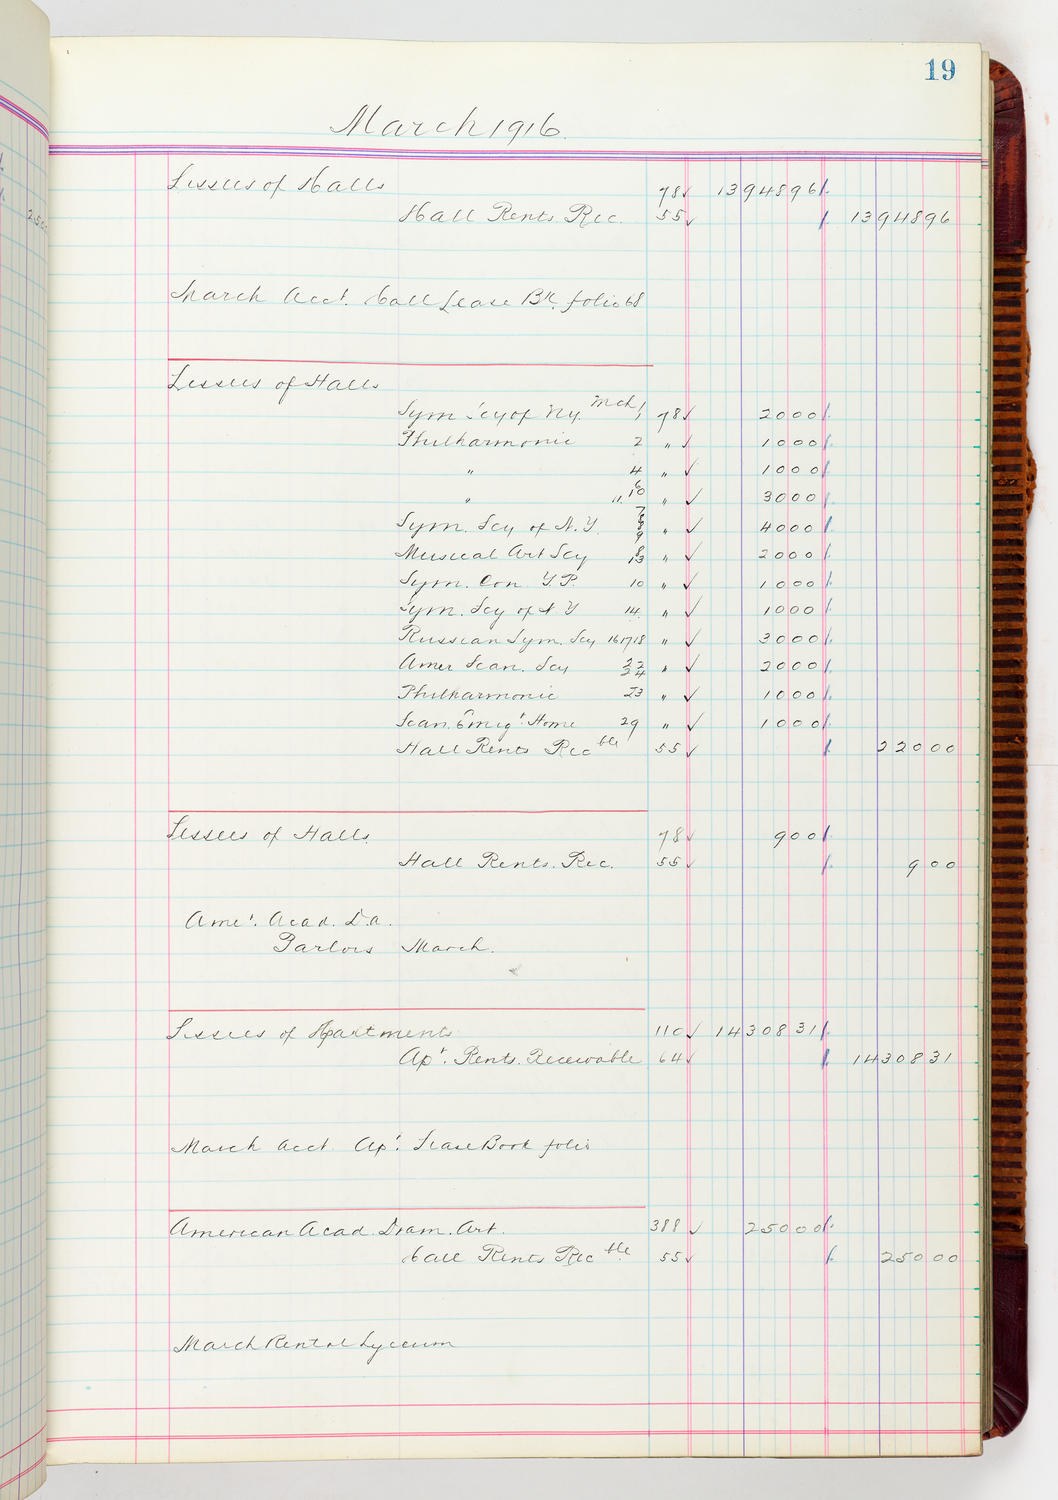 19
March 1916.
Lessees of Halls 78 ✓ 13948 96
Hall Rents Rec. 55 ✓ 13948 96
March Acct. Hall Lease Bk. folio 68
Lessees of Halls
Sym Scy of Ny. Mch 1 78 ✓ 20 00
Philharmonic 2 " ✓ 10 00
" 4 " ✓ 10 00
" 6 10 11 " ✓ 30 00
Sym. Scy of N.Y. " ✓ 40 00
Musical Art Scy 8 13 " ✓ 20 00
Sym. Con Y.P. 10 " ✓ 10 00
Sym. Scy of N Y 14. " ✓ 10 00
Russian Sym. Scy 16 17 18 " ✓ 30 00
Amer Scan. Scy 22 24 " ✓ 20 00
Philharmonic 23 " ✓ 10 00
Scan. Emigt. Home 29 " ✓ 10 00
Hall Rents Recble 55 ✓ 220 00
Lessees of Halls. 78 ✓ 9 00
Hall Rents. Rec. 55 ✓ 9 00
Ame'. Acad. D.a.
Parlors March.
Lessees of Apartments 110 ✓ 14308 31
Ap'. Rents. Receivable 64 ✓ 14308 31
March acct. Ap'. Lease Book folio
American Acad. Dram. Art. 388 ✓ 250 00
Hall Rents Recble 55 ✓ 250 00
March Rent of Lyceum